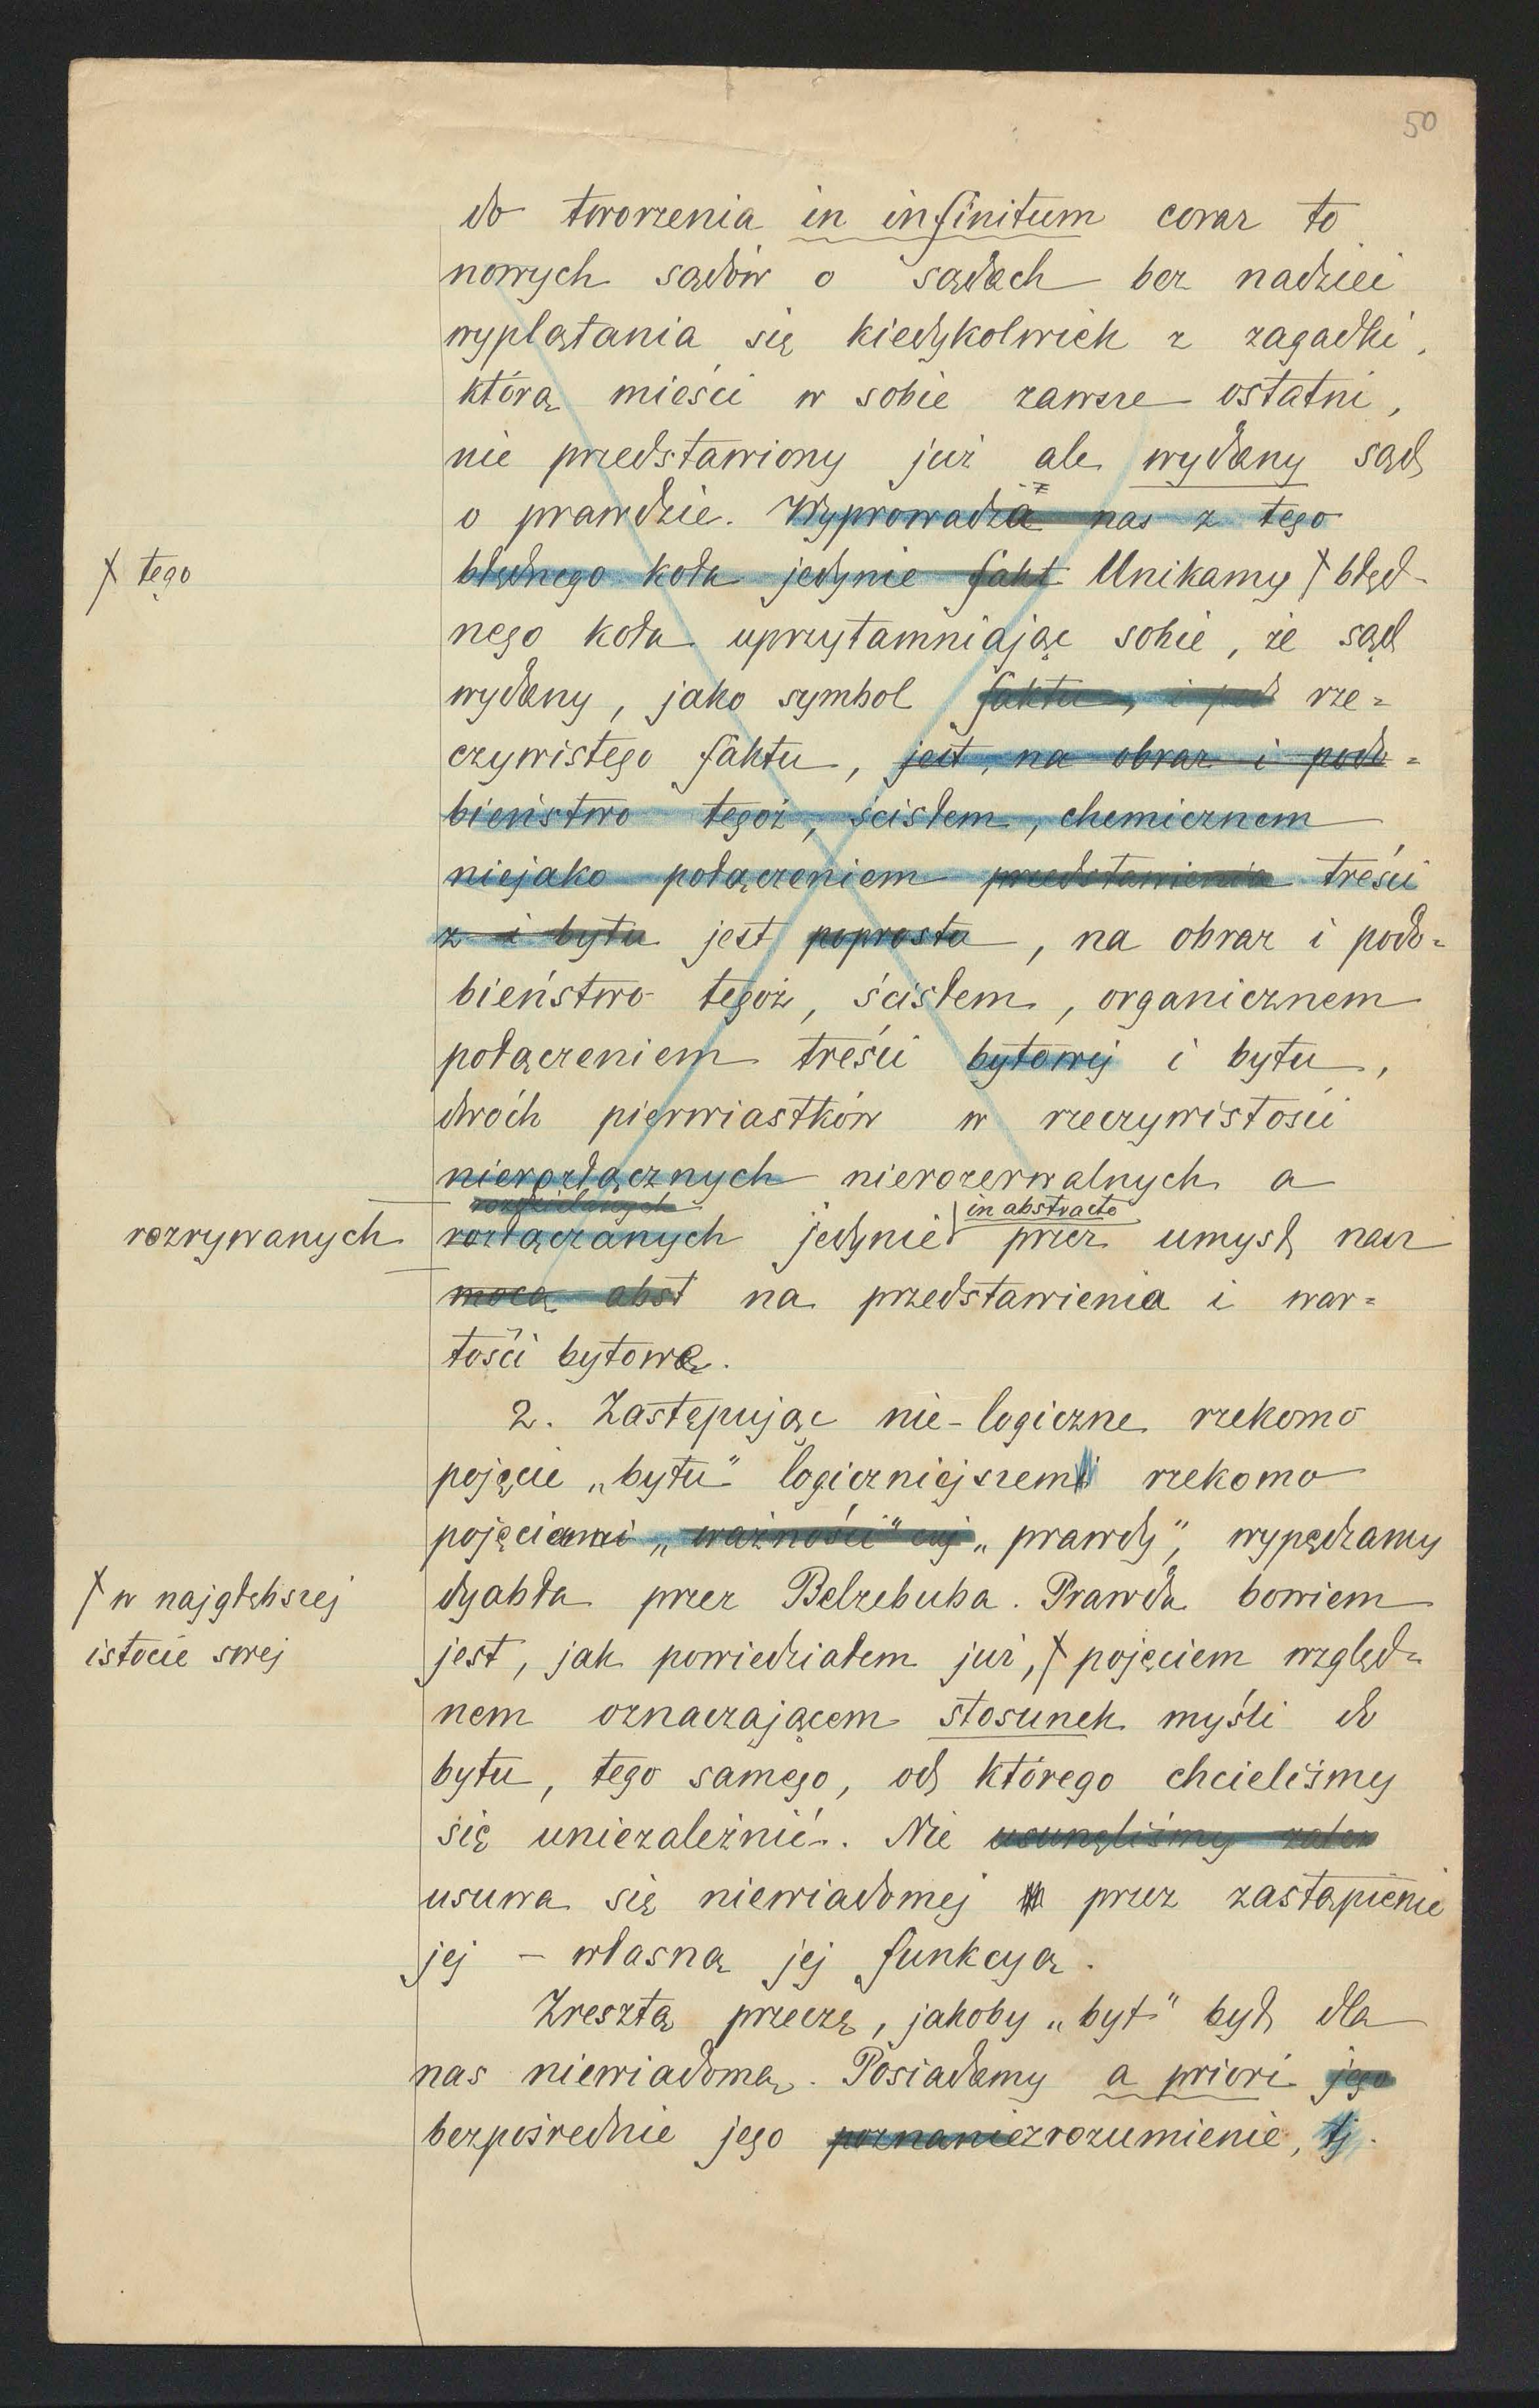 50
do tworzenia in infinitum coraz to
nowych sądów o sądach bez nadziei
wyplątania się kiedykolwiek z zagadki,
którą mieści w sobie zawsze ostatni,
nie przedstawiony już ale wydany sąd
o prawdzie. Wyprowadza nas z tego
błędnego koła jedynie fakt Unikamy błęd-
tego
nego koła uprzytamniając sobie, że sąd
wydany, jako symbol faktu, i pod rze=
czywistego faktu, jest, na obraz i podo=
bieństwo tegoż, ścisłem, chemicznem
niejako połączeniem przedstawienia treści
z i bytu jest poprostu, na obraz i podo=
bieństwo tegoż, ścisłem, organicznem
połączeniem treści bytowej i bytu,
dwóch pierwiastków w rzeczywistości
nierozłącznych nierozerwalnych a
rozdzielanych in abstracto
rozrywanych rozłączanych jedynie przez umysł nasz
mocą abst na przedstawienia i war=
tości bytową.
2. Zastępując nie-logiczne rzekomo
pojęcie „bytu" logiczniejszemi rzekomo
pojęciami „ważności" czy „prawdy", wypędzamy
dyabła przez Belzebuba. Prawda bowiem
w najgłębszej
istocie swej
jest, jak powiedziałem już, pojęciem względ=
nem oznaczającem stosunek myśli do
bytu, tego samego, od którego chcieliśmy
się uniezależnić. Nie usunęliśmy zatem
usuwa się niewiadomej przez zastąpienie
jej – własną jej funkcyą.
Zresztą przeczę, jakoby „byt" był dla
nas niewiadomą. Posiadamy a priori jego
bezpośrednie jego poznanie zrozumienie, tj.